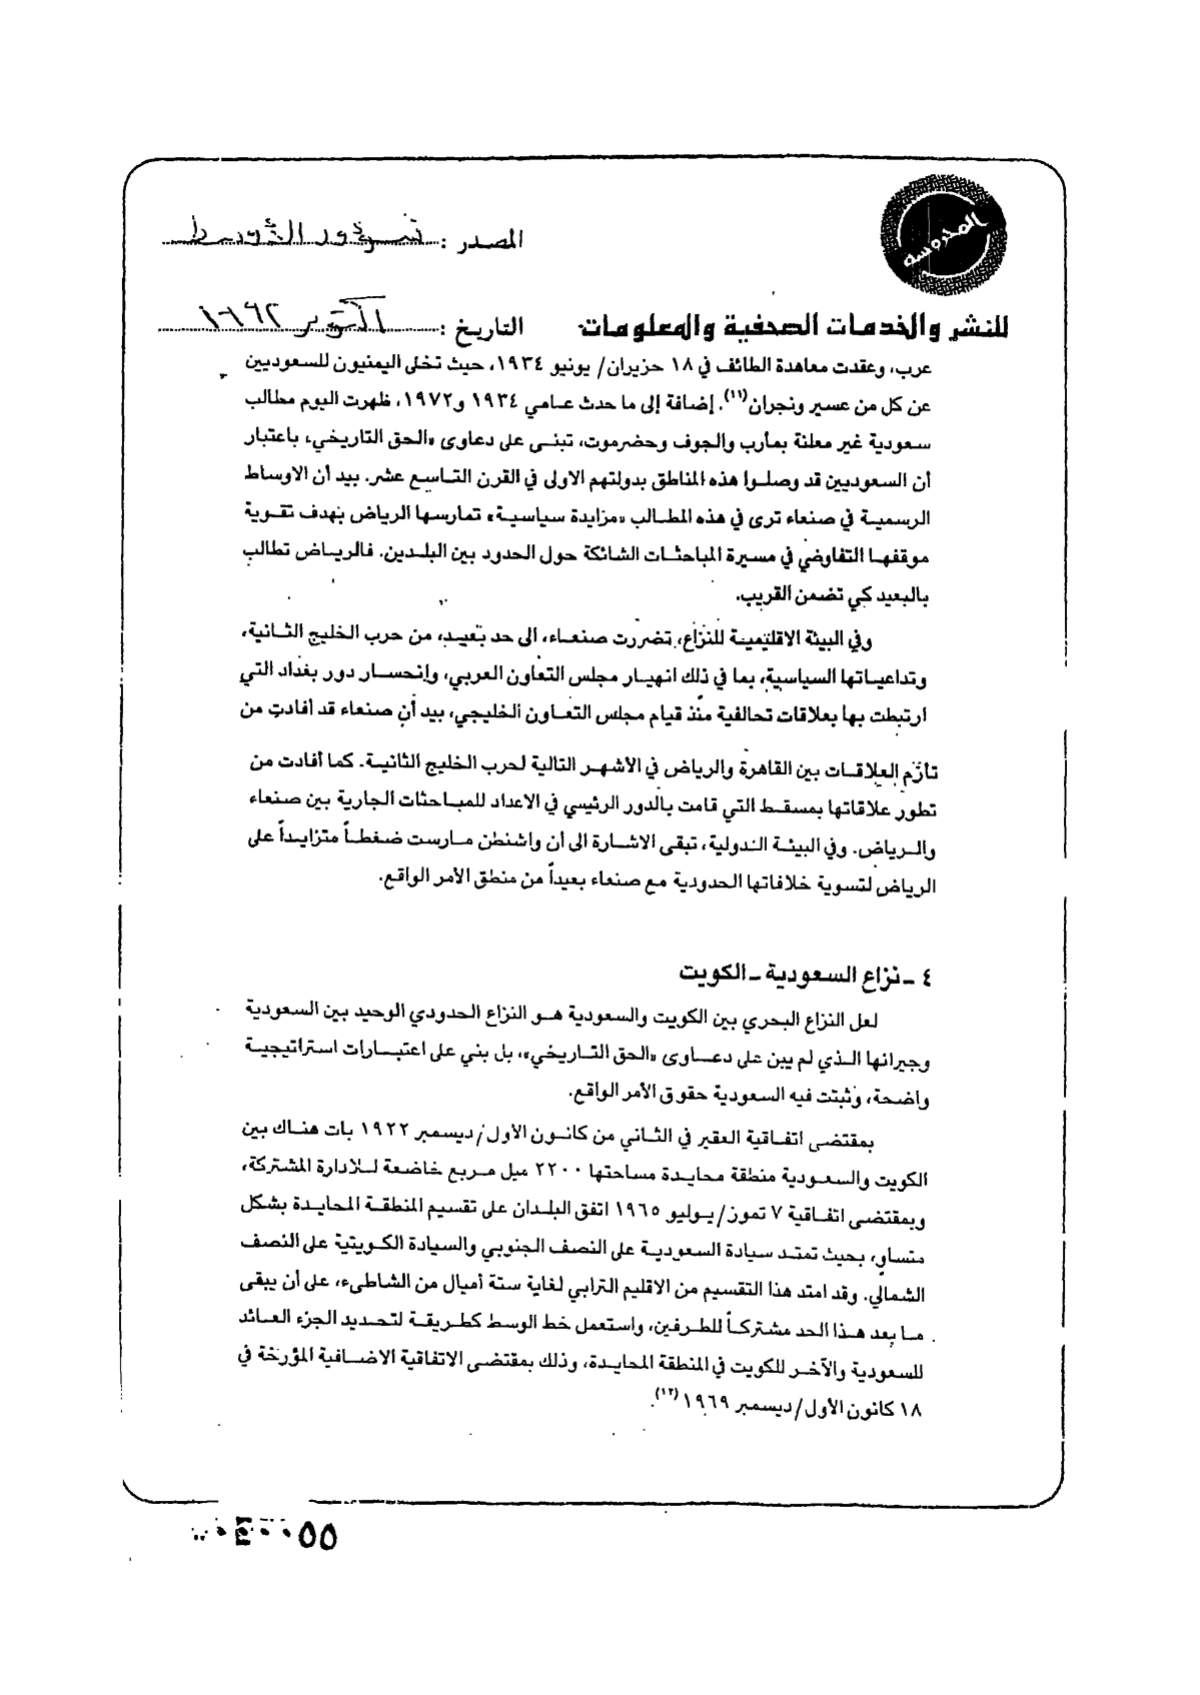 المحروسة
المصدر : شؤون الأوسط
للنشر والخدمات الصحفية والمعلومات
التاريخ : اكتوبر ١٩٩٢
عرب، وعقدت معاهدة الطائف في ١٨ حزيران/ يونيو ١٩٣٤، حيث تخلى اليمنيون للسعوديين
عن كل من عسير ونجران(١١). إضافة إلى ما حدث عامي ١٩٣٤ و١٩٧٢، ظهرت اليوم مطالب
سعودية غير معلنة بمأرب والجوف وحضرموت، تبنى على دعاوى «الحق التاريخي» باعتبار
أن السعوديين قد وصلوا هذه المناطق بدولتهم الاولى في القرن التاسع عشر. بيد أن الاوساط
الرسمية في صنعاء ترى في هذه المطالب «مزايدة سياسية» تمارسها الرياض بهدف تقوية
موقفها التفاوضي في مسيرة المباحثات الشائكة حول الحدود بين البلدين. فالرياض تطالب
بالبعيد كي تضمن القريب.
وفي البيئة الاقليمية للنزاع، تضررت صنعاء، الى حد بعيد، من حرب الخليج الثانية،
وتداعياتها السياسية، بما في ذلك انهيار مجلس التعاون العربي، وإنحسار دور بغداد التي
ارتبطت بها بعلاقات تحالفية منذ قيام مجلس التعاون الخليجي، بيد أن صنعاء قد أفادت من
تأزم العلاقات بين القاهرة والرياض في الأشهر التالية لحرب الخليج الثانية. كما أفادت من
تطور علاقاتها بمسقط التي قامت بالدور الرئيسي في الاعداد للمباحثات الجارية بين صنعاء
والرياض. وفي البيئة الدولية، تبقى الاشارة الى أن واشنطن مارست ضغطاً متزايداً على
الرياض لتسوية خلافاتها الحدودية مع صنعاء بعيداً من منطق الأمر الواقع.
٤ - نزاع السعودية - الكويت
لعل النزاع البحري بين الكويت والسعودية هو النزاع الحدودي الوحيد بين السعودية
وجيرانها الذي لم يبن على دعاوى «الحق التاريخي»، بل بني على اعتبارات استراتيجية
واضحة، وثبتت فيه السعودية حقوق الأمر الواقع.
بمقتضى اتفاقية العقير في الثاني من كانون الأول/ديسمبر ١٩٢٢ بات هناك بين
الكويت والسعودية منطقة محايدة مساحتها ٢٢٠٠ ميل مربع خاضعة للادارة المشتركة،
وبمقتضى اتفاقية ٧ تموز/يوليو ١٩٦٥ اتفق البلدان على تقسيم المنطقة المحايدة بشكل
متساوٍ، بحيث تمتد سيادة السعودية على النصف الجنوبي والسيادة الكويتية على النصف
الشمالي. وقد امتد هذا التقسيم من الاقليم الترابي لغاية ستة أميال من الشاطىء، على أن يبقى
ما بعد هذا الحد مشتركاً للطرفين، واستعمل خط الوسط كطريقة لتحديد الجزء العائد
للسعودية والآخر للكويت في المنطقة المحايدة، وذلك بمقتضى الاتفاقية الاضافية المؤرخة في
١٨ كانون الأول/ديسمبر ١٩٦٩(١٢).